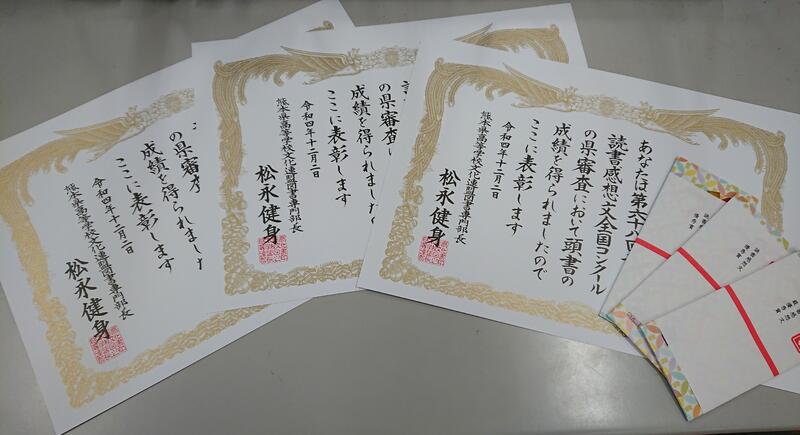 あなたは第六十八回
読書感想文全国コンクール
の県審査において頭書の
成績を得られましたので
ここに表彰します
令和四年十二月二日
熊本県高等学校文化連盟図書専門部長
松永健身
の県審査
成績を得られました
ここに表彰します
令和四年十二月二日
熊本県高等学校文化連盟図書専門部長
松永健身
の県審査
成績を得られました
ここに表彰します
令和四年十二月二日
熊本県高等学校文化連盟図書専門部長
松永健身
読書感想文